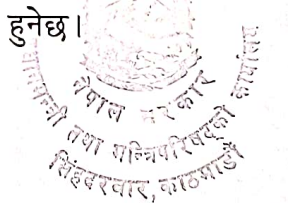 हुनेछ।
नेपाल सरकार
प्रधानमन्त्री तथा मन्त्रिपरिषद्को कार्यालय
सिंहदरबार, काठमाडौं